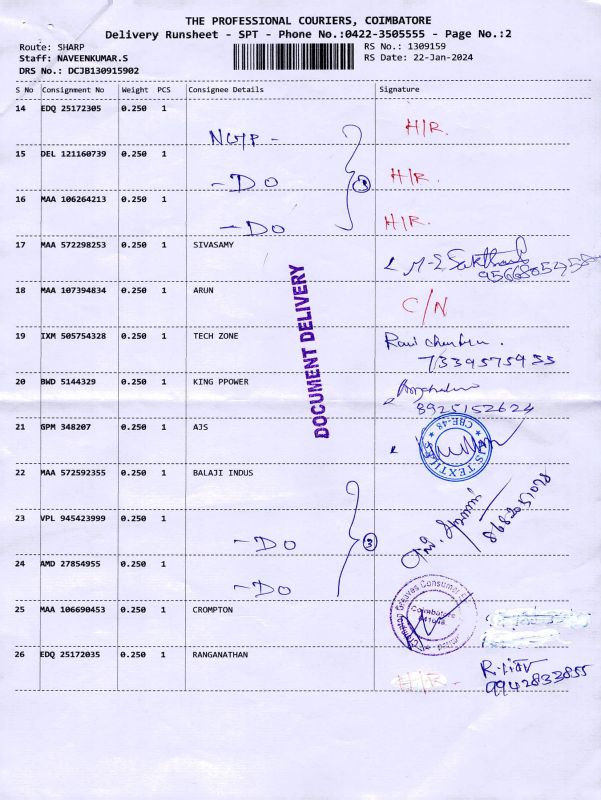 THE PROFESSIONAL COURIERS, COIMBATORE
Delivery Runsheet - SPT - Phone No.:0422-3505555 - Page No.:2
Route: SHARP
RS No.: 1309159
Staff: NAVEENKUMAR.S
RS Date: 22-Jan-2024
DRS No.: DCJB130915902
S No Consignment No Weight PCS Consignee Details Signature
14 EDQ 25172305 0.250 1 H/R.
15 DEL 121160739 0.250 1 - DO H/R.
16 MAA 106264213 0.250 1 - DO H/R.
17 MAA 572298253 0.250 1 SIVASAMY
18 MAA 107394834 0.250 1 ARUN C/N
19 IXM 505754328 0.250 1 TECH ZONE
7339575955
20 BWD 5144329 0.250 1 KING PPOWER
8925152624
21 GPM 348207 0.250 1 AJS
22 MAA 572592355 0.250 1 BALAJI INDUS
23 VPL 945423999 0.250 1 - DO 3
24 AMD 27854955 0.250 1 - DO
25 MAA 106690453 0.250 1 CROMPTON
Coimbatore
26 EDQ 25172035 0.250 1 RANGANATHAN H/R-
9942833855
DOCUMENT DELIVERY
CBE-48